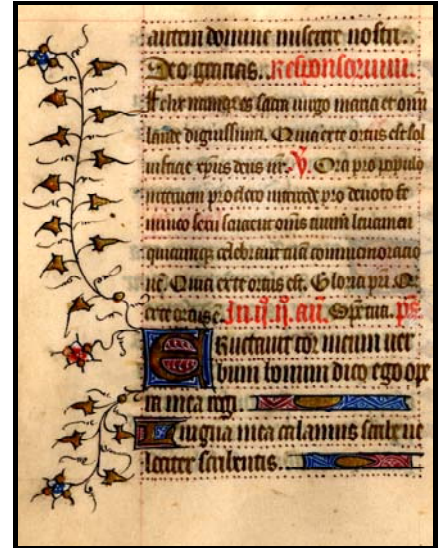 autem domine miserere nostri.
Deo gracias. Responsorium.
Felix namque es sacra virgo maria et omni
laude dignissima. Quia ex te ortus est sol
iusticie xp̄us deus nr̄. V. Ora pro populo
interveni pro clero intercede pro devoto fe
mineo sexu senciant om̄s tuum levamen
quicumq̄ celebrant tua commemoracio
nē. Quia ex te ortus est. Gloria pr̄i.
ex te ortus e. In .an̄. ps̄
Eructavit cor meum ver
bum bonum dico ego ope
ra mea regi
Lingua mea calamus scribe ve
lociter scribentis.